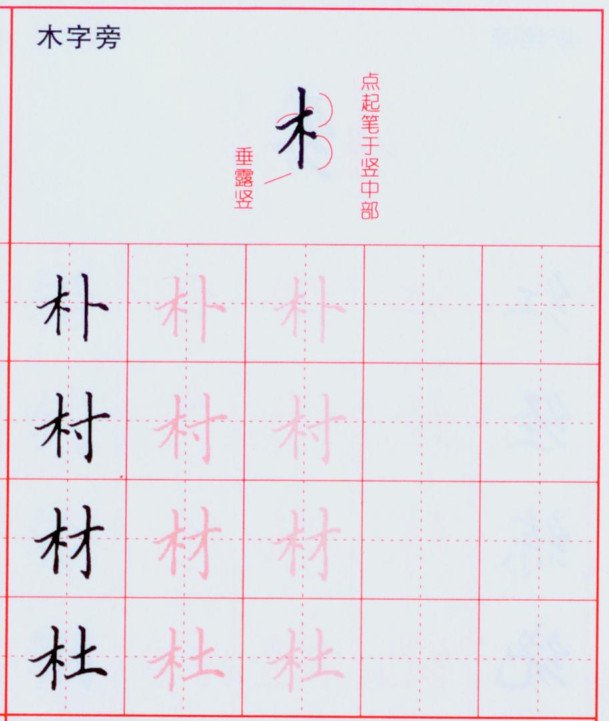 木字旁
木
点起笔于竖中部
垂露竖
朴 朴 朴
村 村 村
材 材 材
杜 杜 杜